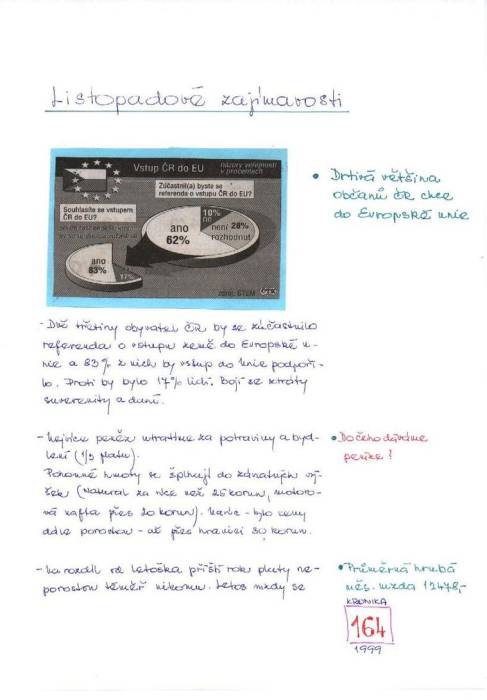 Listopadové zajímavosti
Vstup ČR do EU
názory veřejnosti
v procentech
Zúčastnil(a) byste se
referenda o vstupu ČR do EU?
Souhlasíte se vstupem
ČR do EU?
ano
62%
10%
ne
není 28%
rozhodnut
ano
83%
17%
zdroj: STEM
ČTK
• Drtivá většina
občanů ČR chce
do Evropské unie
- Dvě třetiny obyvatel ČR by se zúčastnilo
referenda o vstupu země do Evropské u-
nie a 83% z nich by vstup do Unie podpoři-
lo. Proti by bylo 17% lidí. Bojí se ztráty
suverenity a daní.
- Nejvíce peněz utratíme za potraviny a byd-
lení (1/3 platu).
Pohonné hmoty se šplhají do závratných vý-
šek (Natural za více než 25 korun, motoro-
vá nafta přes 20 korun). - bylo ceny
dále porostou - až přes hranici 30 korun.
• Do čeho dáváme
peníze?
- Na rozdíl od letoška příští rok platy ne-
porostou téměř nikomu. Letos mzdy se
• Průměrná hrubá
měs. mzda 12478,-
KRONIKA
164
1999